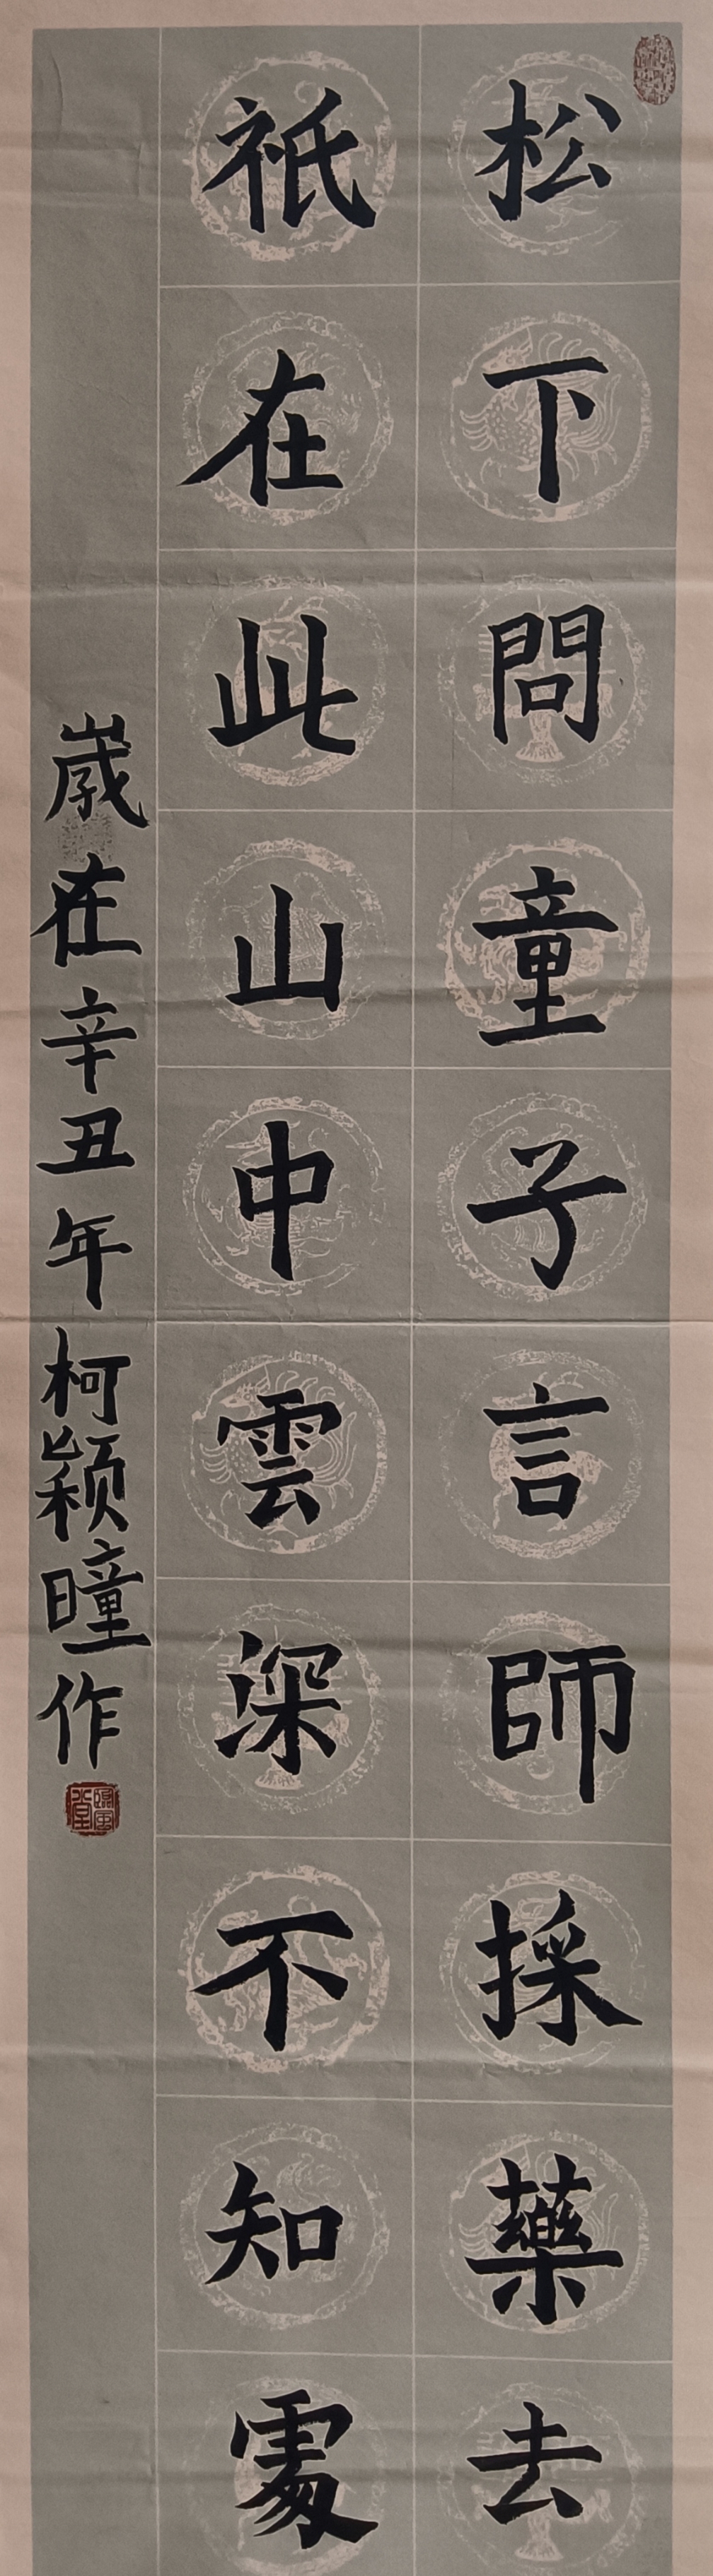 松下問童子言師採藥去
祇在此山中雲深不知處
歲在辛丑年柯颖曈作